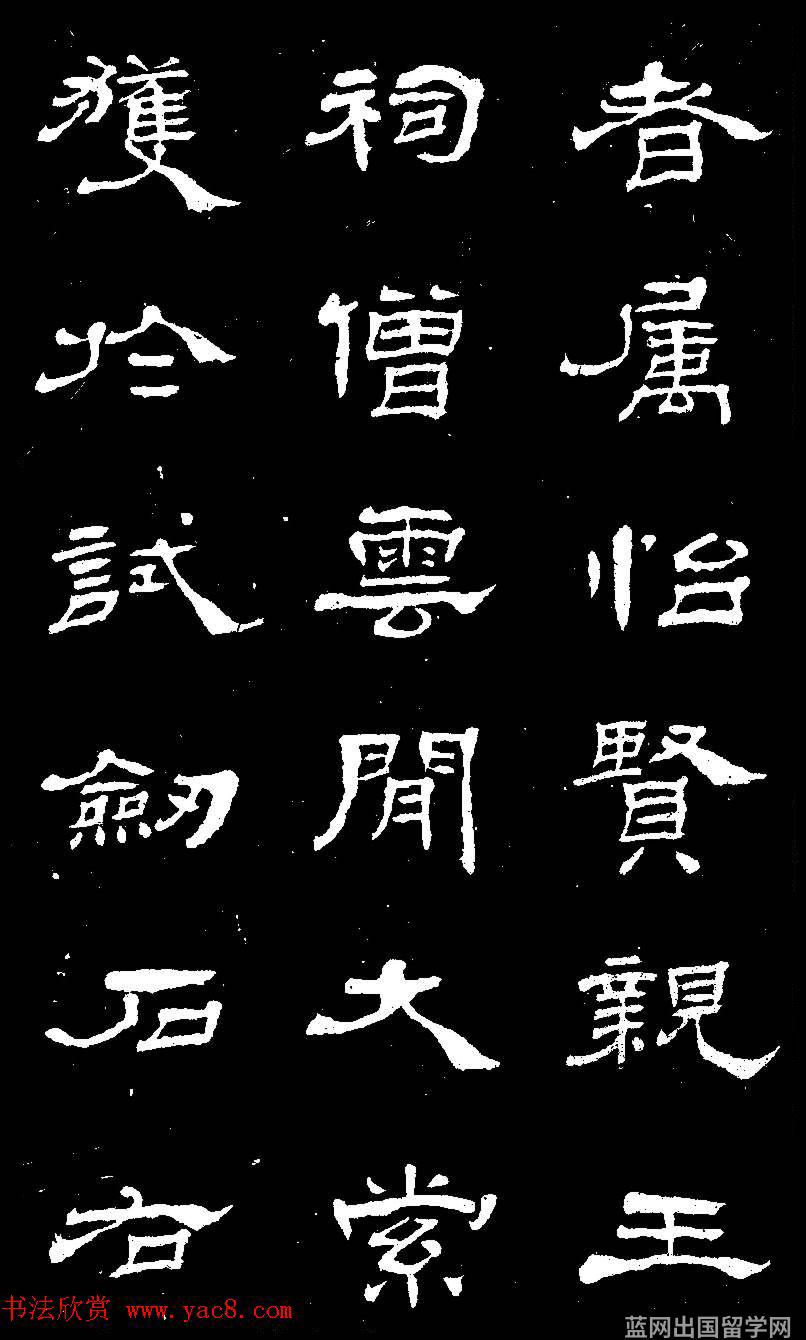 者属怡賢親王
祠僧雲閒大索
獲於試劒石右
书法欣赏 www.yac8.com
蓝网出国留学网